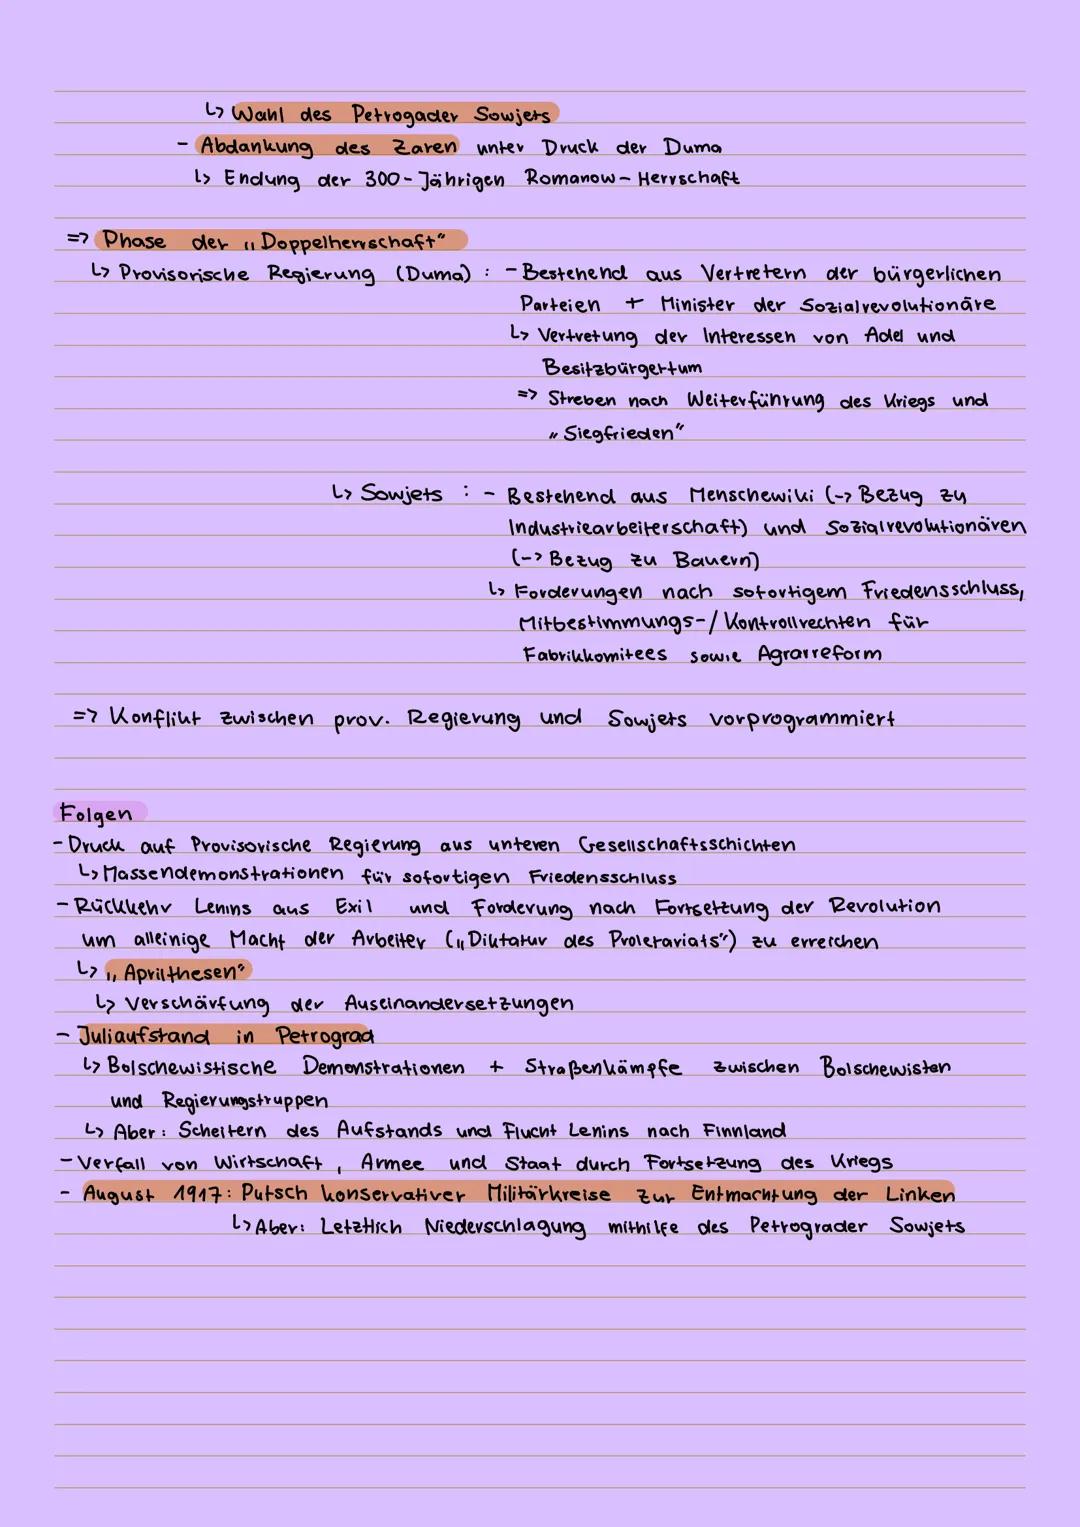 ↳ Wahl des Petrogader Sowjets
- Abdankung des Zaren unter Druck der Duma
↳ Endung der 300-Jährigen Romanow-Herrschaft
=> Phase der „Doppelherrschaft"
↳ Provisorische Regierung (Duma) : - Bestehend aus Vertretern der bürgerlichen
Parteien + Minister der Sozialrevolutionäre
↳ Vertretung der Interessen von Adel und
Besitzbürgertum
=> Streben nach Weiterführung des Kriegs und
„Siegfrieden"
↳ Sowjets : - Bestehend aus Menschewiki (-> Bezug zu
Industriearbeiterschaft) und Sozialrevolutionären
(-> Bezug zu Bauern)
↳ Forderungen nach sofortigem Friedensschluss,
Mitbestimmungs-/Kontrollrechten für
Fabrikkomitees sowie Agrarreform
=> Konflikt zwischen prov. Regierung und Sowjets vorprogrammiert
Folgen
- Druck auf Provisorische Regierung aus unteren Gesellschaftsschichten
↳ Massendemonstrationen für sofortigen Friedensschluss
- Rückkehr Lenins aus Exil und Forderung nach Fortsetzung der Revolution
um alleinige Macht der Arbeiter („Diktatur des Proletariats") zu erreichen
↳ „Aprilthesen"
↳ Verschärfung der Auseinandersetzungen
- Juliaufstand in Petrograd
↳ Bolschewistische Demonstrationen + Straßenkämpfe zwischen Bolschewisten
und Regierungstruppen
↳ Aber: Scheitern des Aufstands und Flucht Lenins nach Finnland
- Verfall von Wirtschaft, Armee und Staat durch Fortsetzung des Kriegs
- August 1917: Putsch konservativer Militärkreise zur Entmachtung der Linken
↳ Aber: Letztlich Niederschlagung mithilfe des Petrograder Sowjets